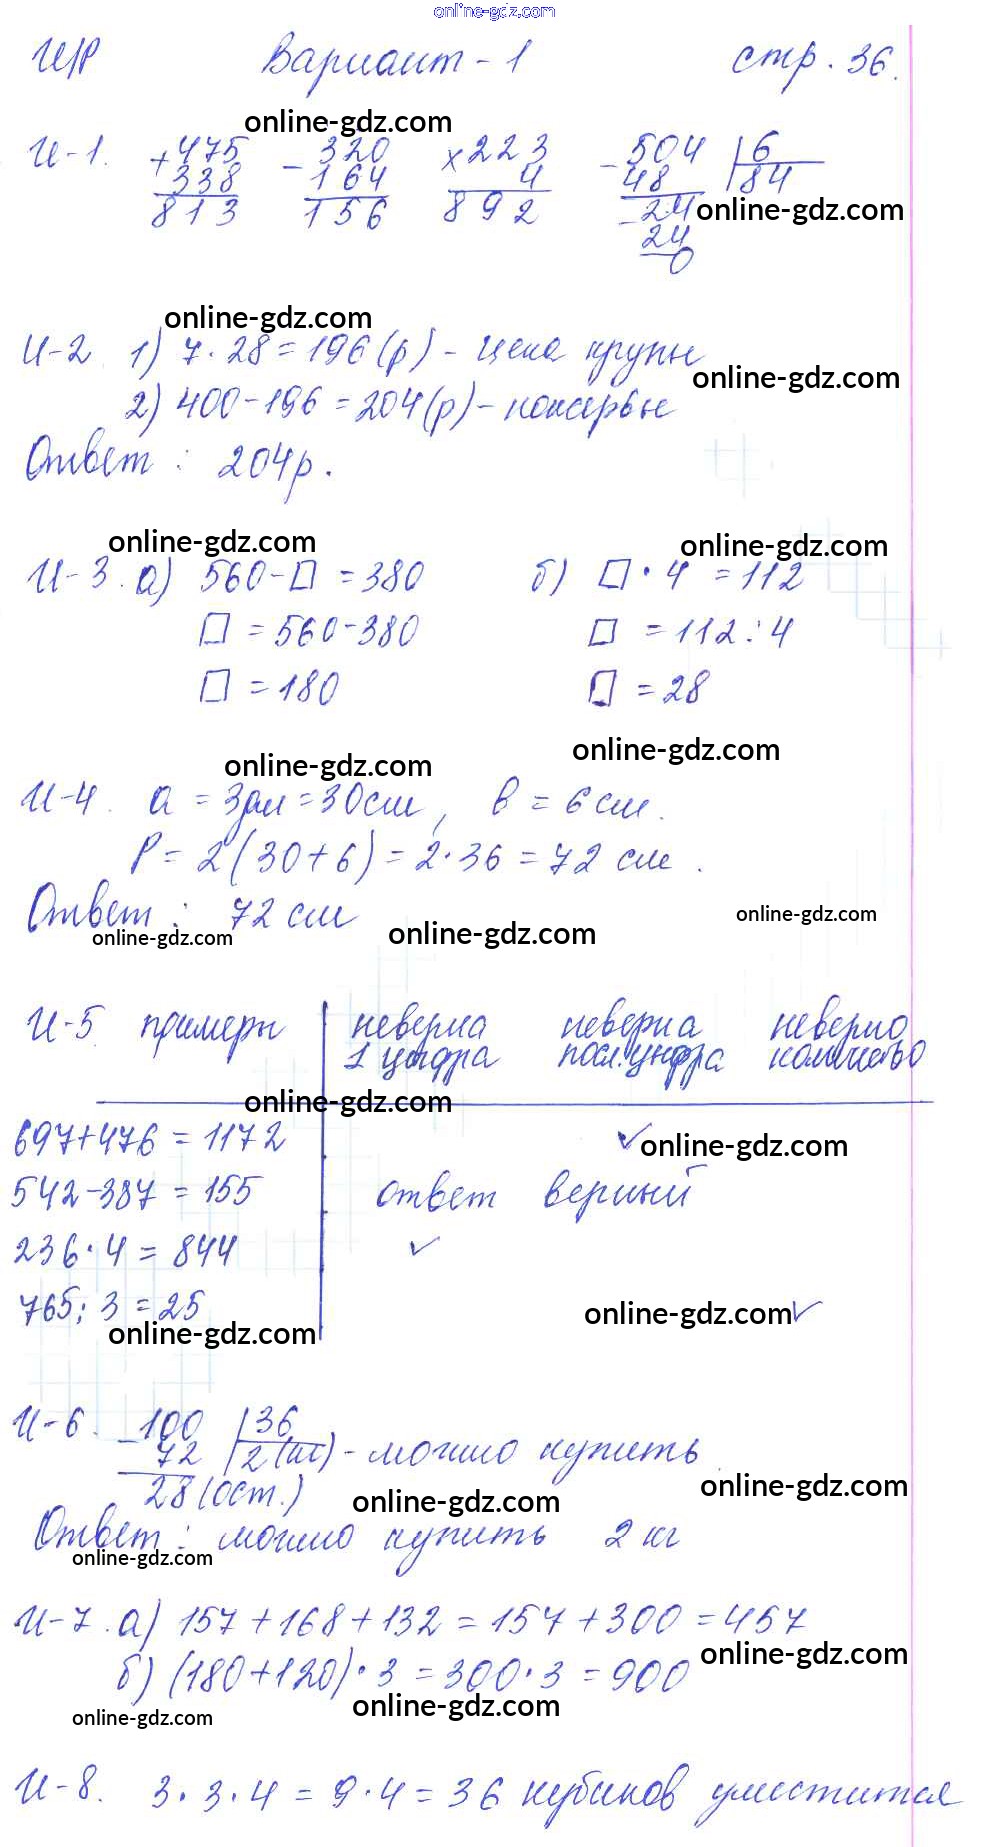 online-gdz.com
И/Р Вариант - 1 стр. 36.
online-gdz.com
И-1. +475 -320 ×223 -504 | 6
338 164 4 48 84
813 156 892 -24 online-gdz.com
24
0
online-gdz.com
И-2. 1) 7 · 28 = 196 (р) - цена крупы
online-gdz.com
2) 400 - 196 = 204 (р) - консервы
Ответ : 204 р.
online-gdz.com online-gdz.com
И-3. а) 560 - □ = 380 б) □ · 4 = 112
□ = 560 - 380 □ = 112 : 4
□ = 180 □ = 28
online-gdz.com online-gdz.com
И-4. а = 3дм = 30см, в = 6 см.
Р = 2 (30 + 6) = 2 · 36 = 72 см.
Ответ : 72 см
online-gdz.com online-gdz.com online-gdz.com
И-5. примеры неверна неверна неверно
1 цифра посл. цифра количество
online-gdz.com
697 + 476 = 1172 ✓ online-gdz.com
542 - 387 = 155 ответ верный
236 · 4 = 844 ✓
765 : 3 = 25 ✓
online-gdz.com online-gdz.com
И-6. -100 | 36
72 2 (кг) - можно купить
28 (ост.) online-gdz.com online-gdz.com
Ответ : можно купить 2 кг
online-gdz.com
И-7. а) 157 + 168 + 132 = 157 + 300 = 457
online-gdz.com
б) (180 + 120) · 3 = 300 · 3 = 900
online-gdz.com online-gdz.com
И-8. 3 · 3 · 4 = 9 · 4 = 36 кубиков уместится